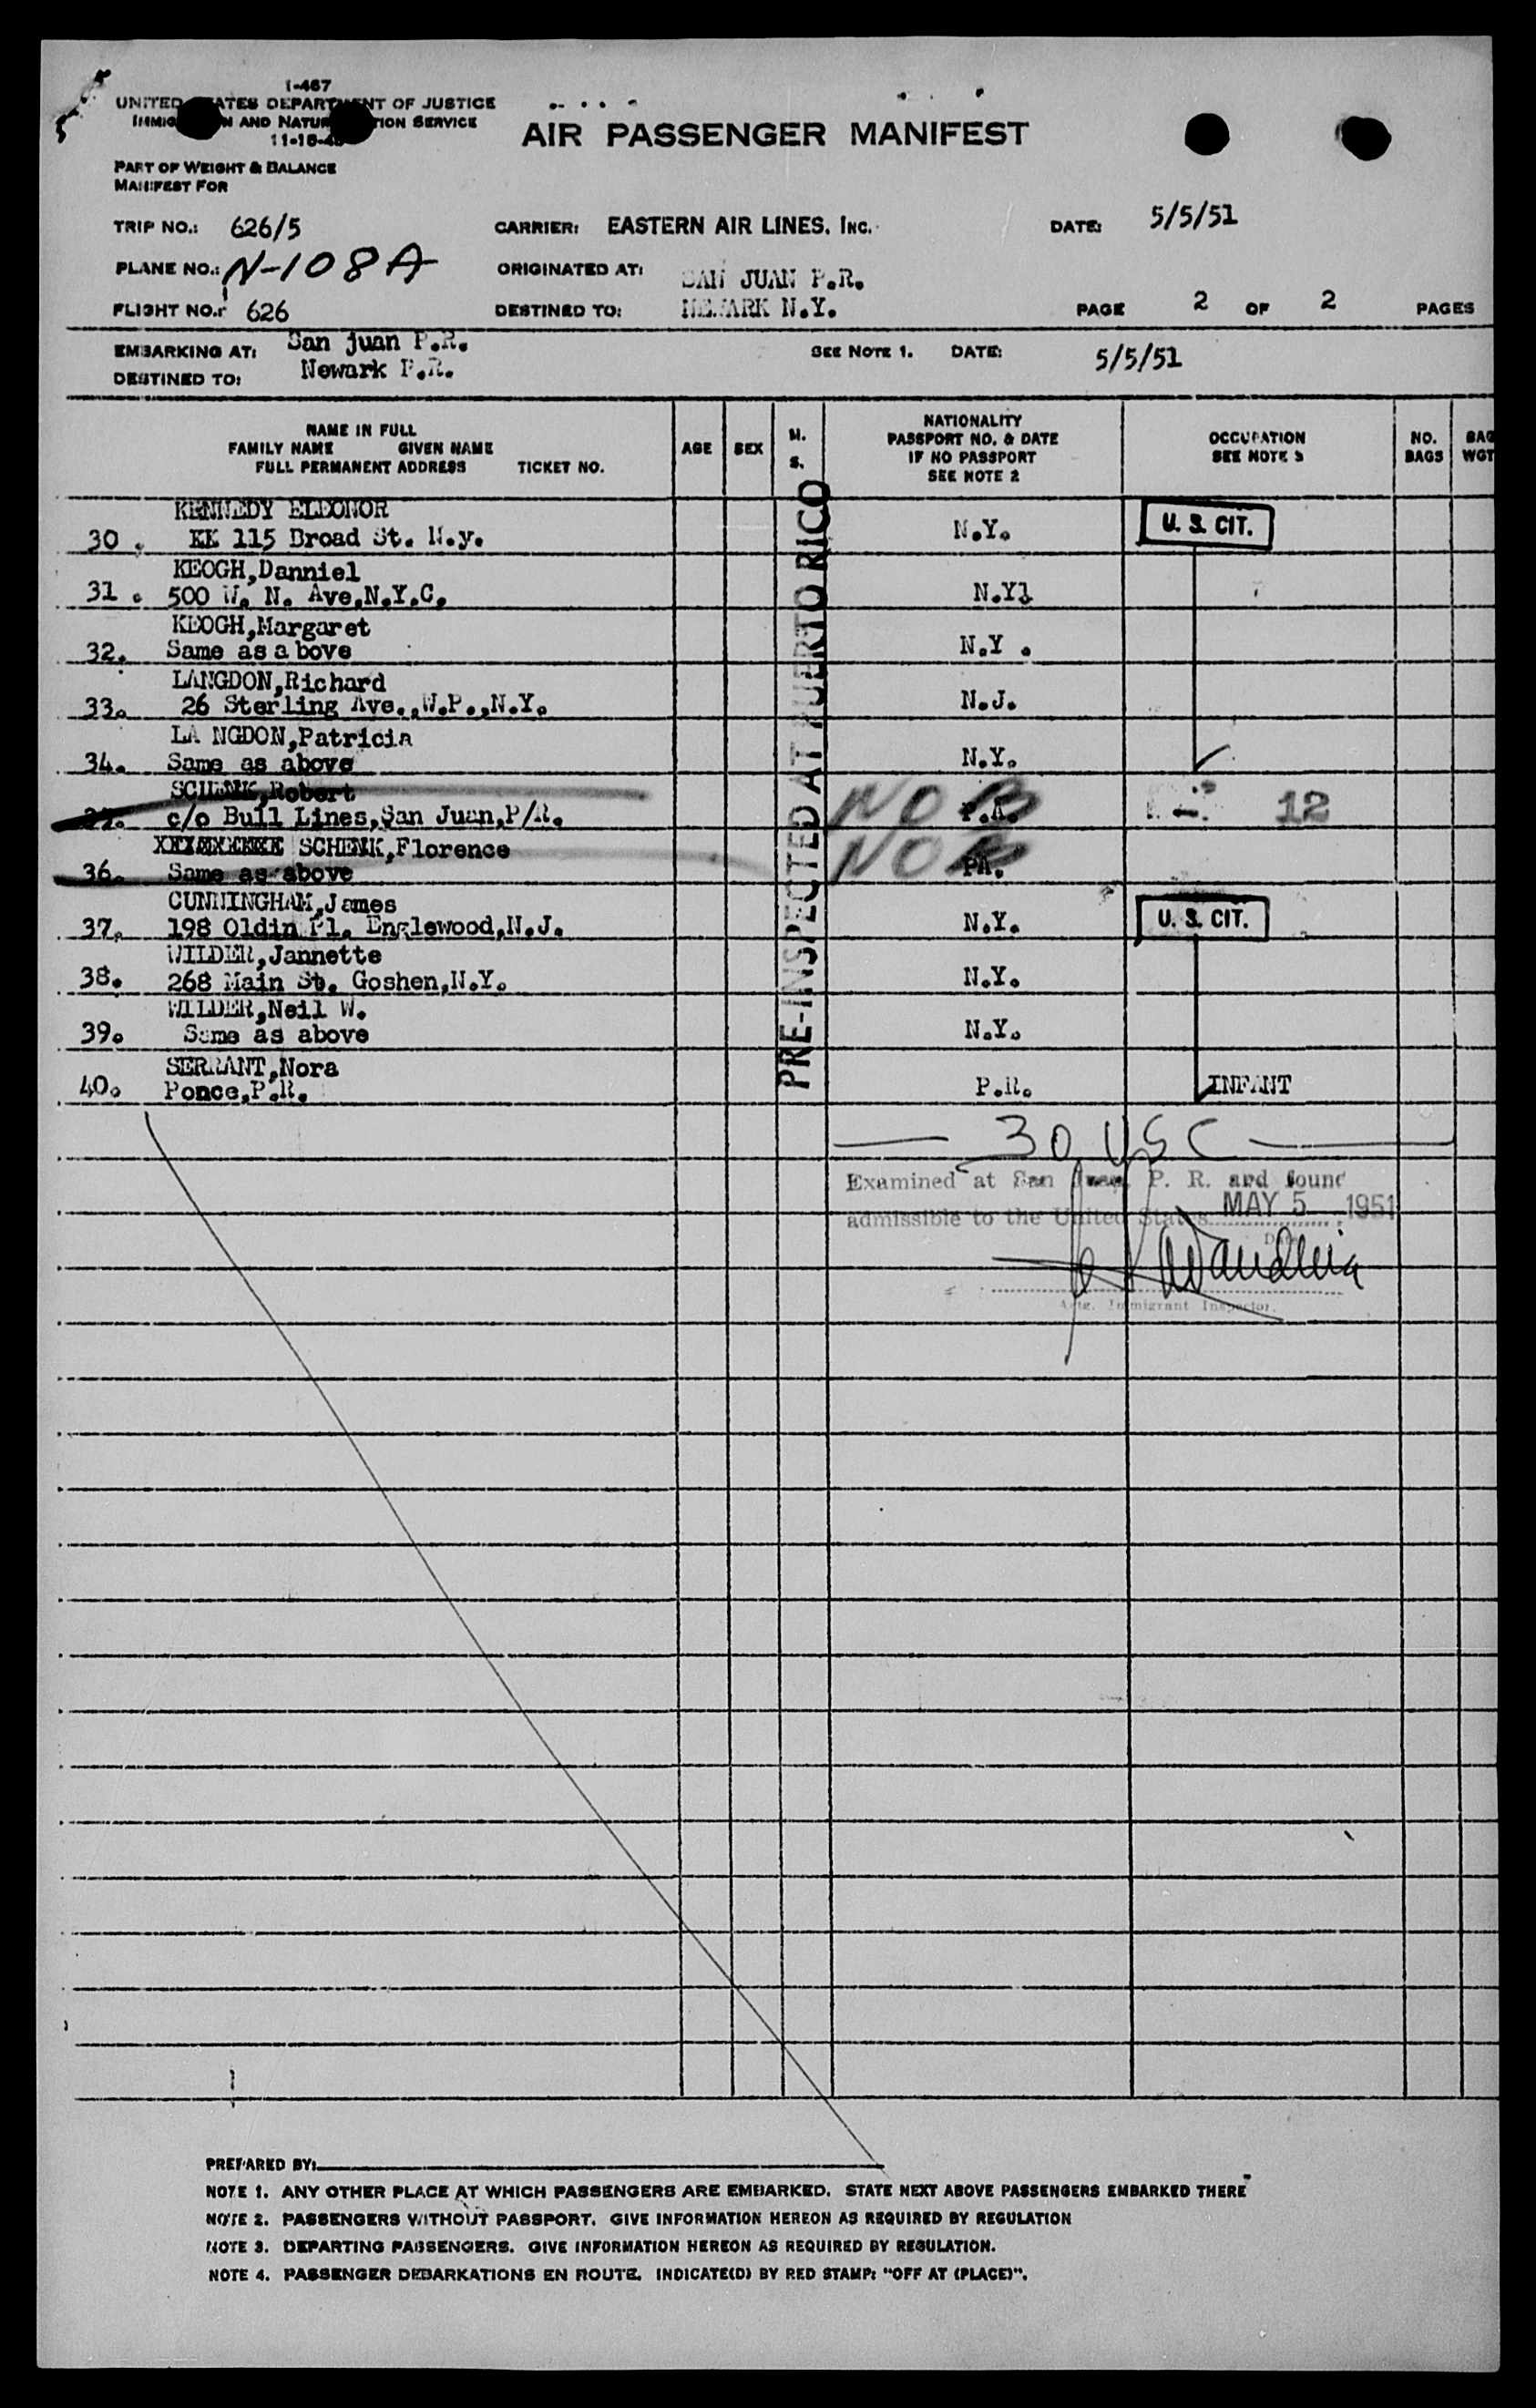 I-467
UNITED STATES DEPARTMENT OF JUSTICE
IMMIGRATION AND NATURALIZATION SERVICE
AIR PASSENGER MANIFEST
PART OF WEIGHT & BALANCE
MANIFEST FOR
TRIP NO.: 626/5 CARRIER: EASTERN AIR LINES, INC. DATE: 5/5/51
PLANE NO.: N-108A ORIGINATED AT: SAN JUAN P.R.
FLIGHT NO.: 626 DESTINED TO: NEWARK N.Y. PAGE 2 OF 2 PAGES
EMBARKING AT: San juan P.R. SEE NOTE 1. DATE: 5/5/51
DESTINED TO: Newark P.R.
NAME IN FULL
FAMILY NAME GIVEN NAME
FULL PERMANENT ADDRESS TICKET NO.
AGE SEX M. S.
NATIONALITY
PASSPORT NO. & DATE
IF NO PASSPORT
SEE NOTE 2
OCCUPATION
SEE NOTE 3
NO. BAGS
BAG WGT
PRE-INSPECTED AT PUERTO RICO
KENNEDY ELEONOR
30. KK 115 Broad St. N.y. N.Y. U. S. CIT.
KEOGH,Danniel
31. 500 W. N. Ave,N.Y.C. N.Yl
KEOGH,Margaret
32. Same as a bove N.Y .
LANGDON,Richard
33. 26 Sterling Ave.,W.P.,N.Y. N.J.
LA NGDON,Patricia
34. Same as above N.Y.
SCHENK,Robert
35. c/o Bull Lines,San Juan,P/R. NOB P.A. 12
SCHENK,Florence
36. Same as above NOB PA.
CUNNINGHAM,James
37. 198 Oldin Pl. Englewood,N.J. N.Y. U. S. CIT.
WILDER,Jannette
38. 268 Main St. Goshen,N.Y. N.Y.
WILDER,Neil W.
39. Same as above N.Y.
SERRANT,Nora
40. Ponce,P.R. P.R. INFANT
30 USC
Examined at San Juan, P. R. and found
admissible to the United States MAY 5 1951
Date
Actg. Immigrant Inspector.
PREPARED BY:
NOTE 1. ANY OTHER PLACE AT WHICH PASSENGERS ARE EMBARKED. STATE NEXT ABOVE PASSENGERS EMBARKED THERE
NOTE 2. PASSENGERS WITHOUT PASSPORT. GIVE INFORMATION HEREON AS REQUIRED BY REGULATION
NOTE 3. DEPARTING PASSENGERS. GIVE INFORMATION HEREON AS REQUIRED BY REGULATION.
NOTE 4. PASSENGER DEBARKATIONS EN ROUTE. INDICATE(D) BY RED STAMP: "OFF AT (PLACE)".